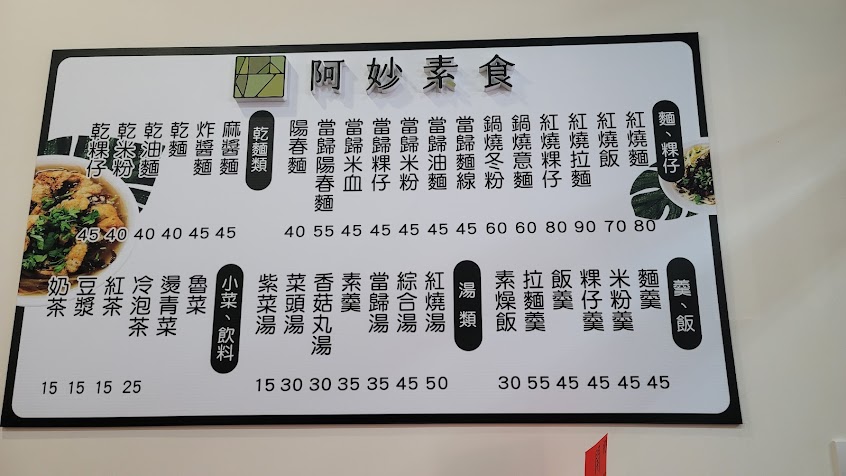 阿妙素食
麵、粿仔
紅燒麵 80
紅燒飯 70
紅燒拉麵 90
紅燒粿仔 80
鍋燒意麵 60
鍋燒冬粉 60
當歸麵線 45
當歸油麵 45
當歸米粉 45
當歸粿仔 45
當歸米血 45
當歸陽春麵 55
陽春麵 40
乾麵類
麻醬麵 45
炸醬麵 45
乾麵 40
乾油麵 40
乾米粉 40
乾粿仔 45
羹、飯
麵羹 45
米粉羹 45
粿仔羹 45
飯羹 45
拉麵羹 55
素燥飯 30
湯類
紅燒湯 50
綜合湯 45
當歸湯 35
素羹 35
香菇丸湯 30
菜頭湯 30
紫菜湯 15
小菜、飲料
魯菜
燙青菜
冷泡茶 25
紅茶 15
豆漿 15
奶茶 15